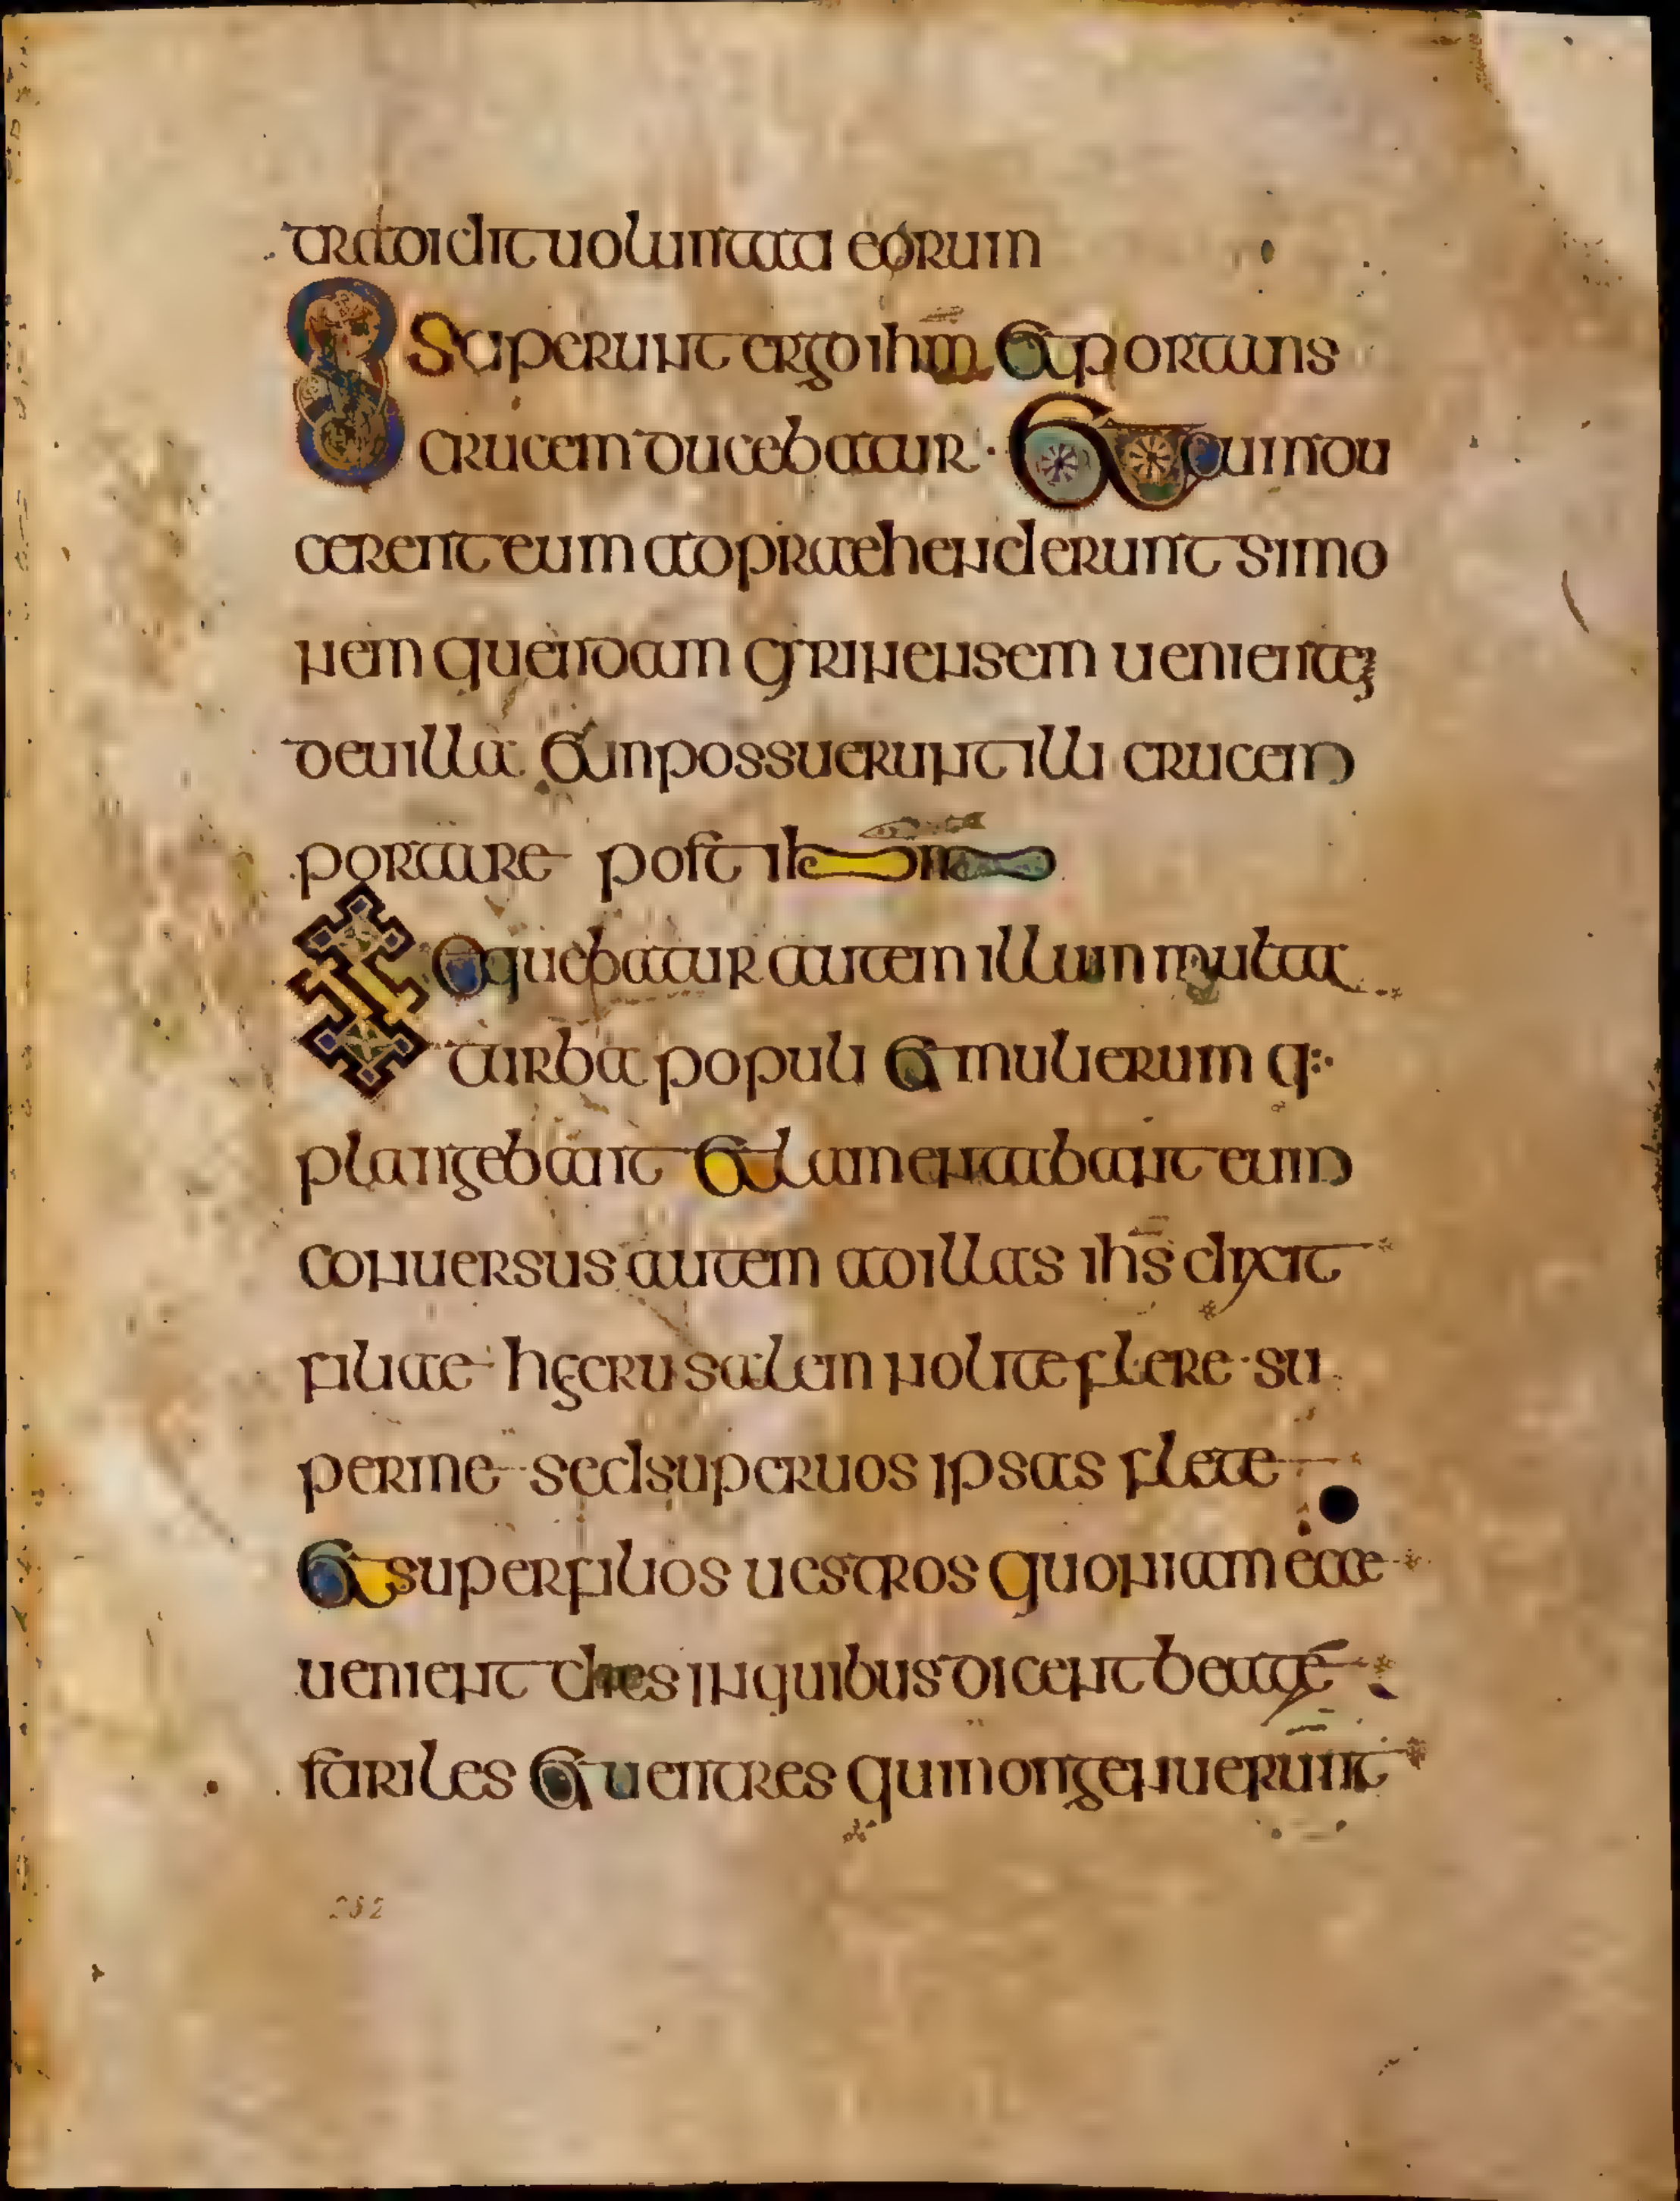 tradidit uoluntati eorum
Susciperunt ergo ihm et portans
crucem ducebatur · et cum du
cerent eum adpraehenderunt simo
nem quendam cyrinensem uenientem
de uilla et inpossuerunt illi crucem
portare post ihm
Sequebatur autem illum multa
turba populi et mulierum q:·
plangebant et lamentabant eum
conuersus autem ad illas ihs dixit
filiae · hyerusalem nolite flere · su
per me · sed super uos ipsas flete
et super filios uestros quoniam ecce
uenient dies in quibus dicent beatae
stariles et uentres qui non genuerunt
282